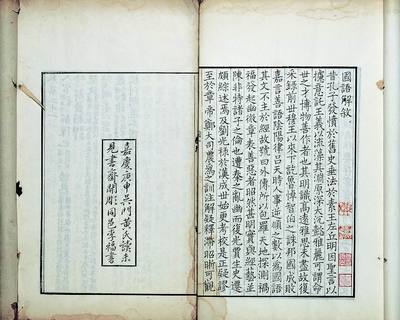 國語解敘
昔孔子發憤於舊史垂法於素王左丘明因聖言以
攄意託王義以流藻其淵原深大沈懿雅麗可謂命
世之才博物善作者也其明識高遠雅思未盡故復
采錄前世穆王以來下訖魯悼智伯之誅邦國成敗
嘉言善語陰陽律呂天時人事逆順之數以為國語
其文不主於經故號曰外傳所以包羅天地探測禍
福發起幽微章表善惡者昭然甚明實與經藝並
陳非特諸子之倫也遭秦之亂幽而復光賈生史遷
頗綜述焉及劉光祿於漢成世始更考校是正疑謬
至於章帝鄭大司農為之訓注解疑釋滯昭晰可觀
嘉慶庚申吳門黃氏讀未
見書齋開雕同邑李福書